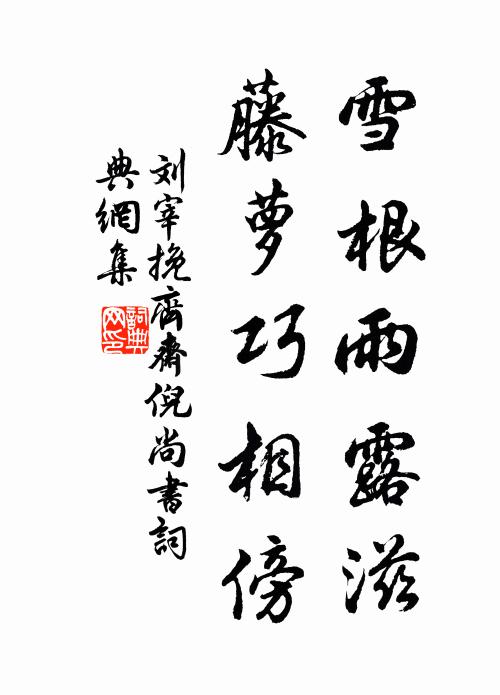 雪根雨露滋
藤萝巧相傍
刘宰挽齐斋倪尚書詞
典網集
詞典
网印